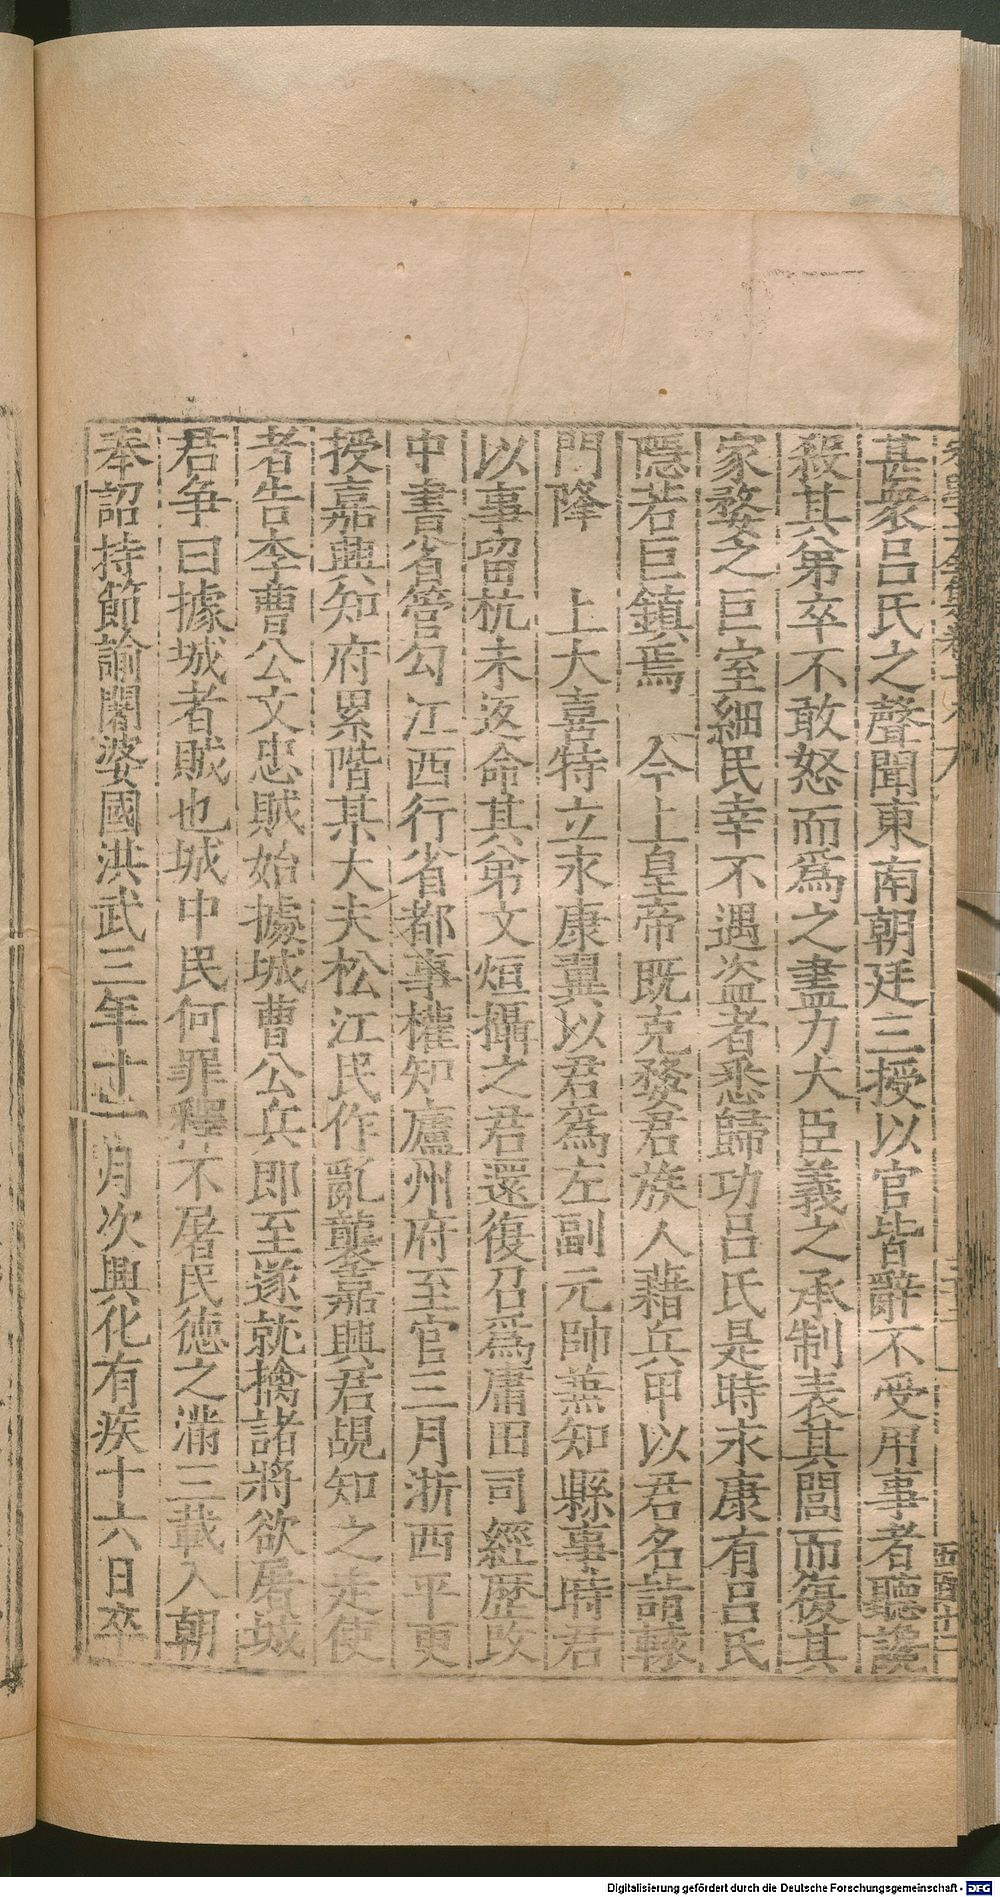 甚衆呂氏之聲聞東南朝廷三授以官皆辭不受用事者聽讒
殺其弟卒不敢怒而爲之盡力大臣義之承制表其閭而復其
家婺之巨室細民幸不遇盜者悉歸功呂氏是時永康有呂氏
隱若巨鎮焉　今上皇帝既克婺君族人藉兵甲以君名請轅
門降　上大喜特立永康翼以君爲左副元帥兼知縣事時君
以事留杭未返命其弟文烜攝之君還復召爲庸田司經歷改
中書省管勾江西行省都事權知廬州府至官三月浙西平更
授嘉興知府累階某大夫松江民作亂襲嘉興君覘知之走使
者告李曹公文忠賊始據城曹公兵即至遂就擒諸將欲屠城
君爭曰據城者賊也城中民何罪釋不屠民德之滿三載入朝
奉詔持節諭闍婆國洪武三年十一月次興化有疾十六日卒
Digitalisierung gefördert durch die Deutsche Forschungsgemeinschaft - DFG